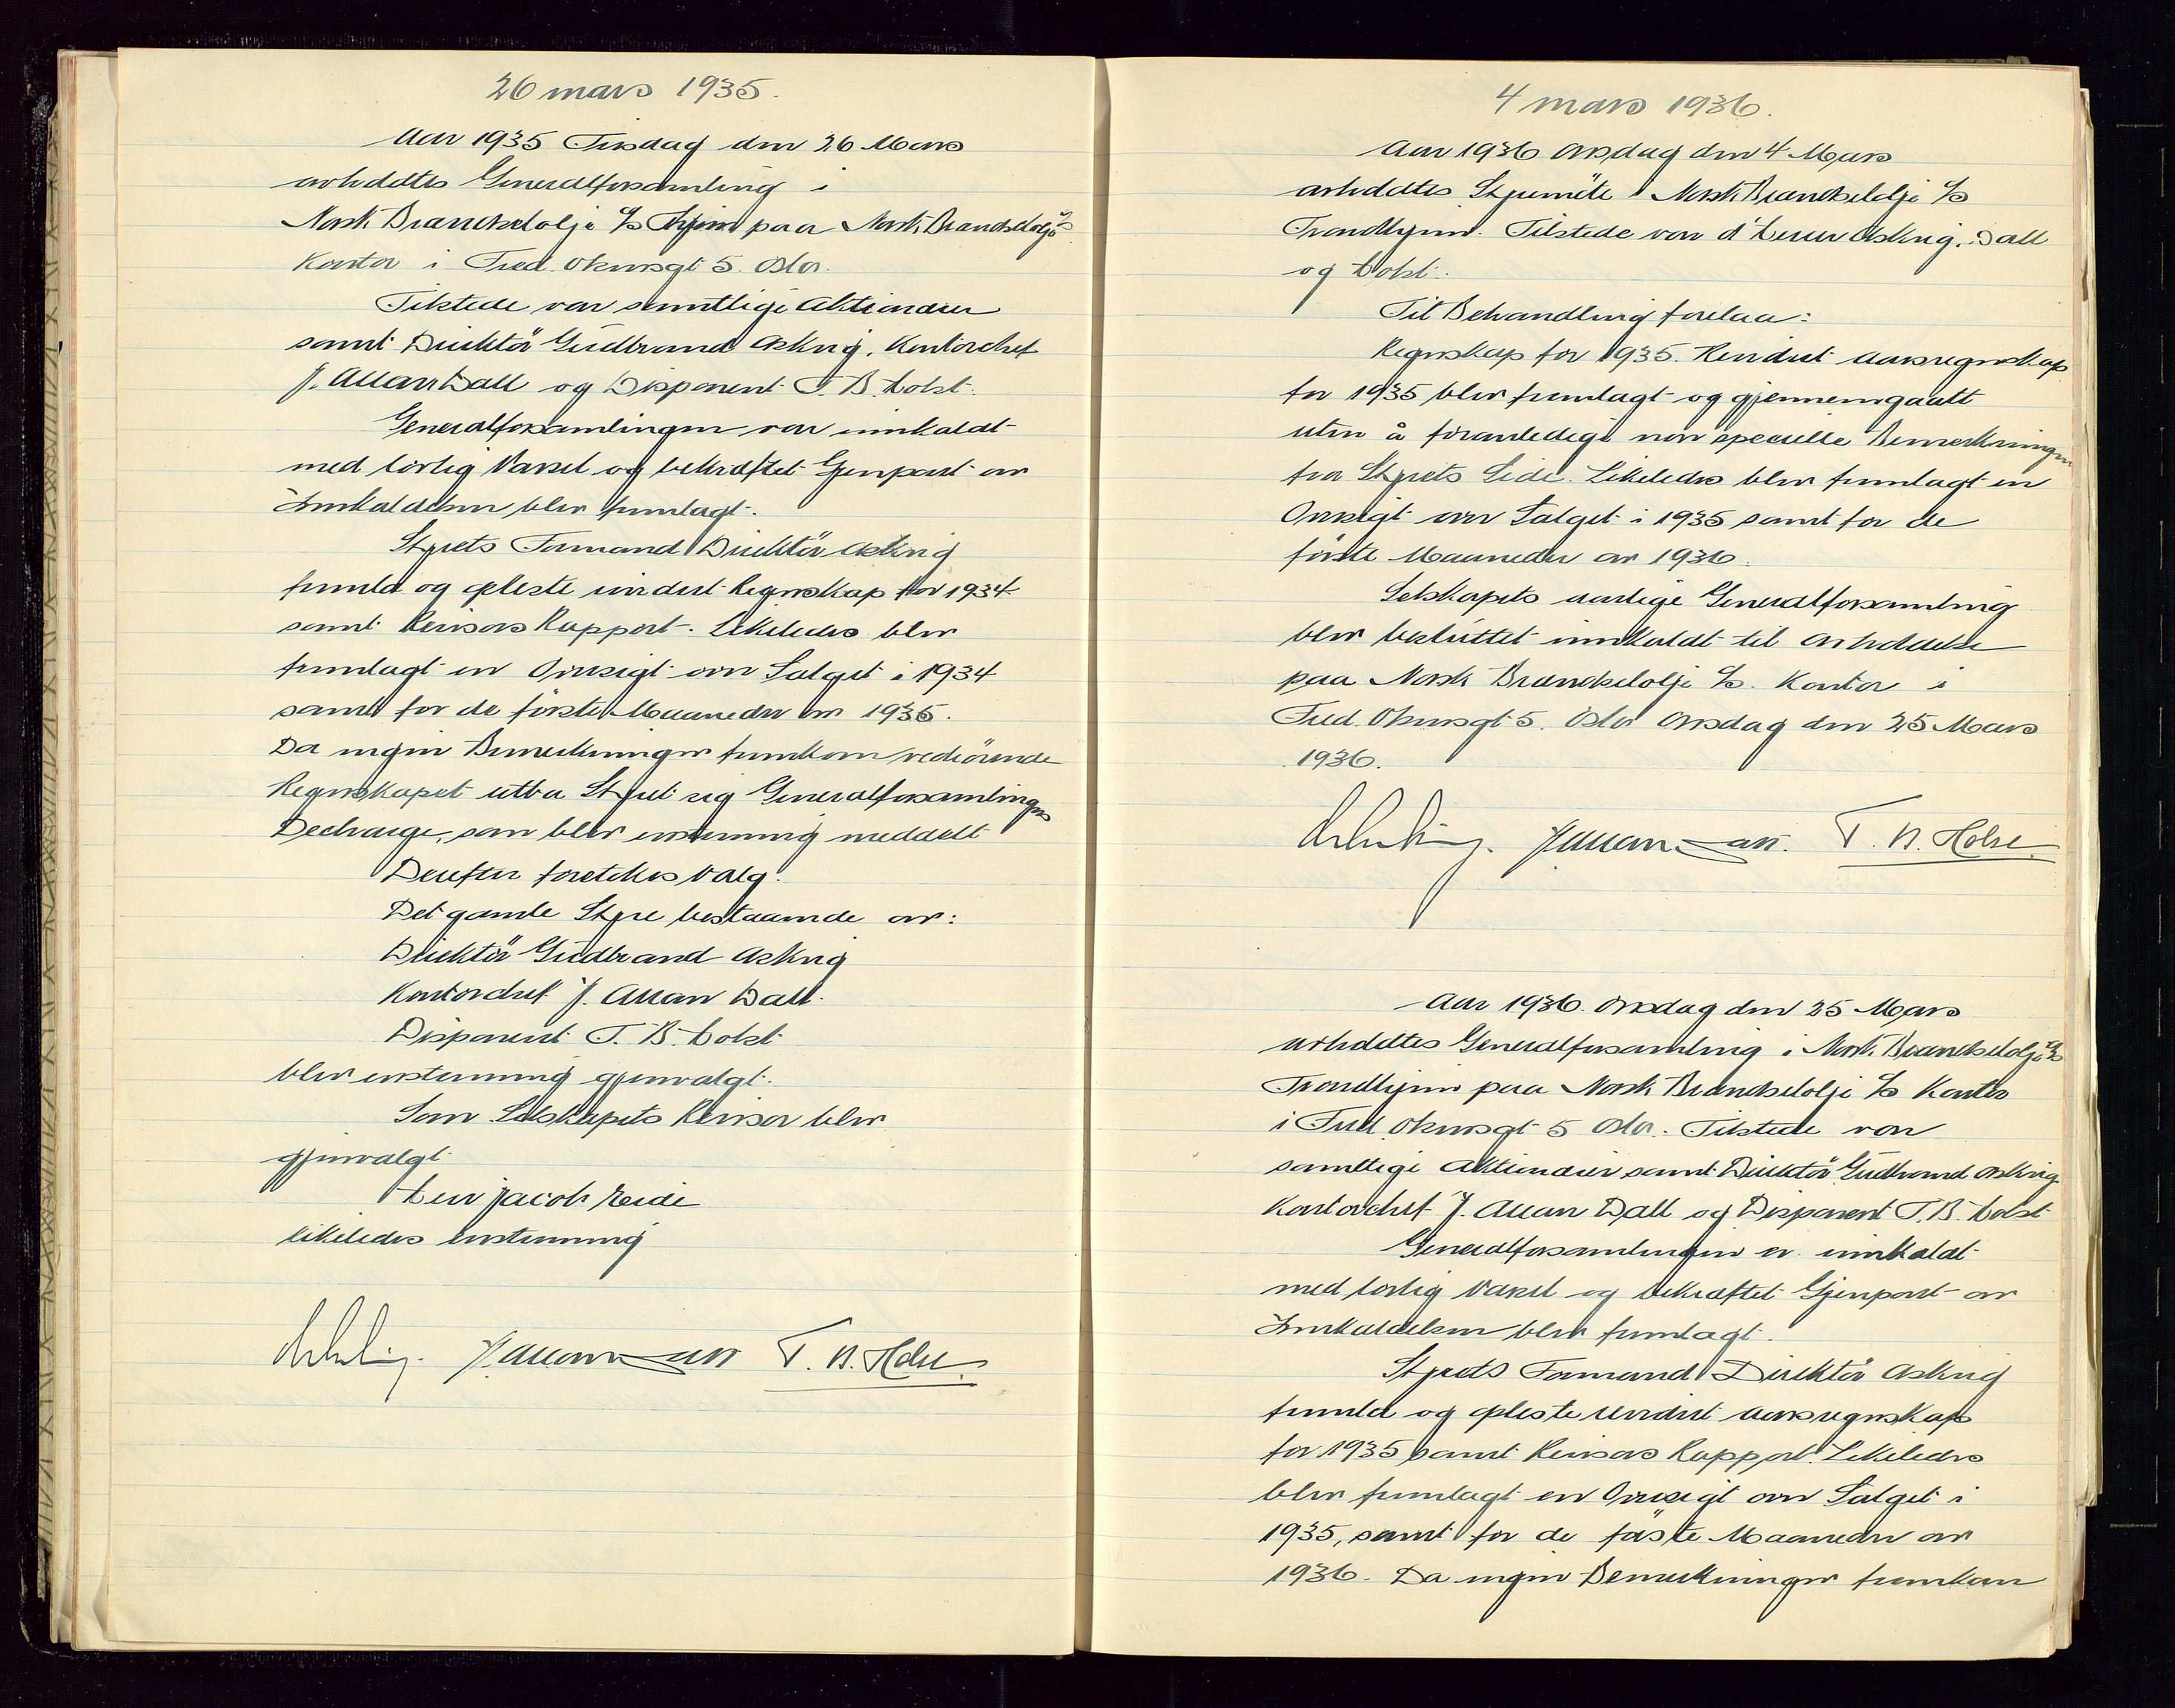 26 mars 1935.
Aar 1935 Tirsdag den 26 Mars
avholdtes Generalforsamling i
Norsk Brændselolje A/S Thjem paa Norsk Brændselolje A/S
Kontor i Fred. Olsensgt 5. Oslo.
Tilstede var samtlige Aktionærer
samt Direktör Gudbrand Askvig, Kontorchef
J. Allan Dall og Disponent T. B. Holst.
Generalforsamlingen var innkaldt
med lovlig Varsel og bekræftet Gjenpart av
Innkaldelsen blev fremlagt.
Styrets Formand Direktör Askvig
fremla og opleste revidert Regnskap for 1934
samt Revisors Rapport. Likeledes blev
fremlagt en Oversigt over Salget i 1934
samt for de förste Maaneder av 1935.
Da ingen Bemerkninger fremkom vedrörende
Regnskapet utba Styret sig Generalforsamlingens
Decharge, som blev enstemmig meddelt
Derefter foretokes Valg.
Det gamle Styre bestaaende av:
Direktör Gudbrand Askvig
Kontorchef J. Allan Dall.
Disponent T. B. Holst
blev enstemmig gjenvalgt.
Som Selskapets Revisor blev
gjenvalgt
Herr Jacob Eide
likeledes enstemmig
J. Allan Dall T. B. Holst.
4 mars 1936.
Aar 1936 Onsdag den 4 Mars
avholdtes Styremöte i Norsk Brændselolje A/S
Trondhjem. Tilstede var d'Herrer Askvig, Dall
og Holst.
Til Behandling forelaa:
Regnskap for 1935. Revidert Aarsregnskap
for 1935 blev fremlagt og gjennemgaatt
uten å foranledige noen specielle Bemerkninger
fra Styrets Side. Likeledes blev fremlagt en
Oversigt over Salget i 1935 samt for de
förste Maaneder av 1936.
Selskapets aarlige Generalforsamling
blev besluttet innkaldt til Avholdelse
paa Norsk Brændselolje A/S. Kontor i
Fred. Olsensgt 5. Oslo Onsdag den 25 Mars
1936.
J. Allan Dall. T. B. Holst.
Aar 1936. Onsdag den 25 Mars
avholdtes Generalforsamling i Norsk Brændselolje A/S
Trondhjem paa Norsk Brændselolje A/S Kontor
i Fred. Olsensgt 5 Oslo. Tilstede var
samtlige Aktionærer samt Direktör Gudbrand Askvig
Kontorchef J. Allan Dall og Disponent T. B. Holst
Generalforsamlingen er innkaldt
med lovlig Varsel og bekræftet Gjenpart av
Innkaldelsen blev fremlagt.
Styrets Formand Direktör Askvig
fremla og opleste revidert Aarsregnskap
for 1935 samt Revisors Rapport. Likeledes
blev fremlagt en Oversigt over Salget i
1935, samt for de förste Maaneder av
1936. Da ingen Bemerkninger fremkom